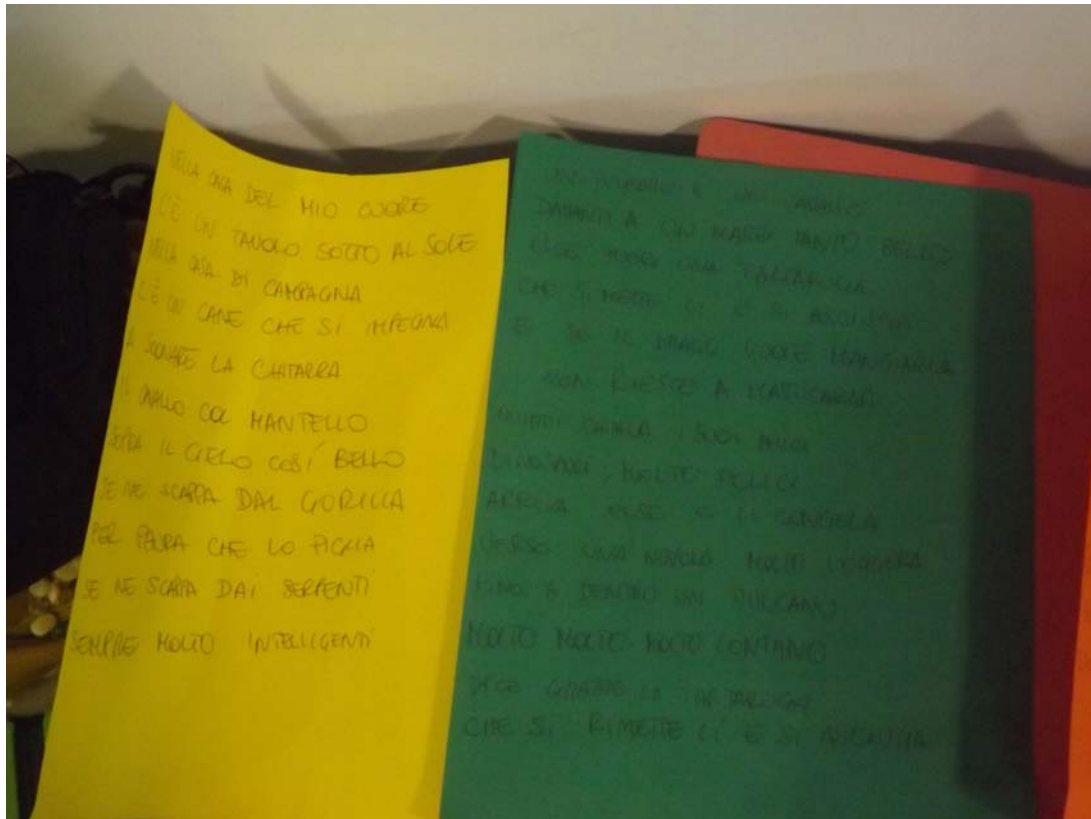 NELLA CASA DEL MIO CUORE
C'È UN TAVOLO SOTTO AL SOLE
NELLA CASA DI CAMPAGNA
C'È UN CANE CHE SI IMPEGNA
A SUONARE LA CHITARRA
IL CAVALLO COL MANTELLO
SOPRA IL CIELO COSÍ BELLO
SE NE SCAPPA DAL GORILLA
PER PAURA CHE LO PIGLIA
SE NE SCAPPA DAI SERPENTI
SEMPRE MOLTO INTELLIGENTI
UN
DAVANTI A UN MARE TANTO BELLO
UNA TARTARUGA
CHE SI METTE LÌ E SI ASCIUGA
E SE IL DRAGO VUOLE MANGIARLA
NON RIESCE A MASTICARLA
QUINDI CHIAMA I SUOI AMICI
DINOSAURI MOLTO FELICI
ARRIVA ELSE E LI CONGELA
VERSO UNA NUVOLA MOLTO LEGGERA
FINO A DENTRO UN VULCANO
MOLTO MOLTO MOLTO LONTANO
DICE GRAZIE LA TARTARUGA
CHE SI RIMETTE LÌ E SI ASCIUGA